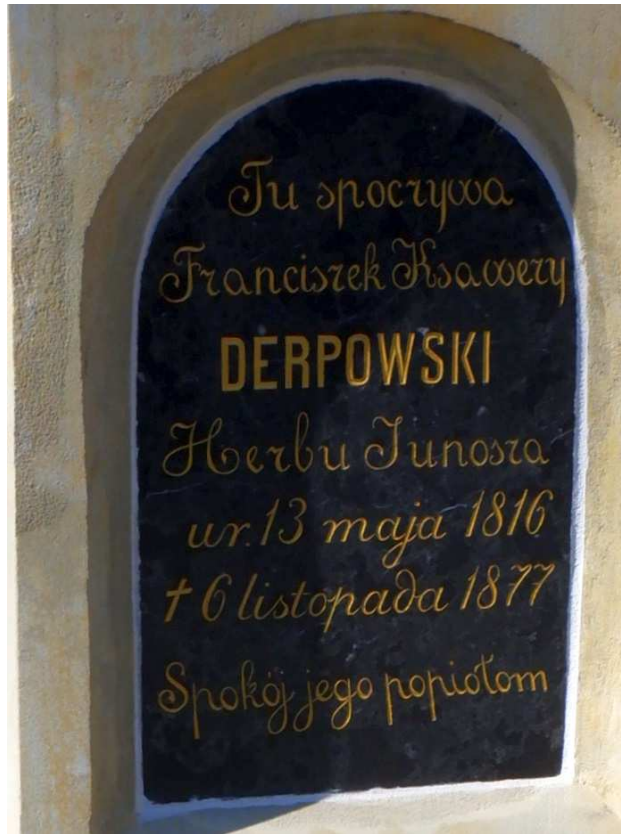 Tu spoczywa
Franciszek Ksawery
DERPOWSKI
Herbu Junosza
ur. 13 maja 1816
† 6 listopada 1877
Spokój jego popiołom